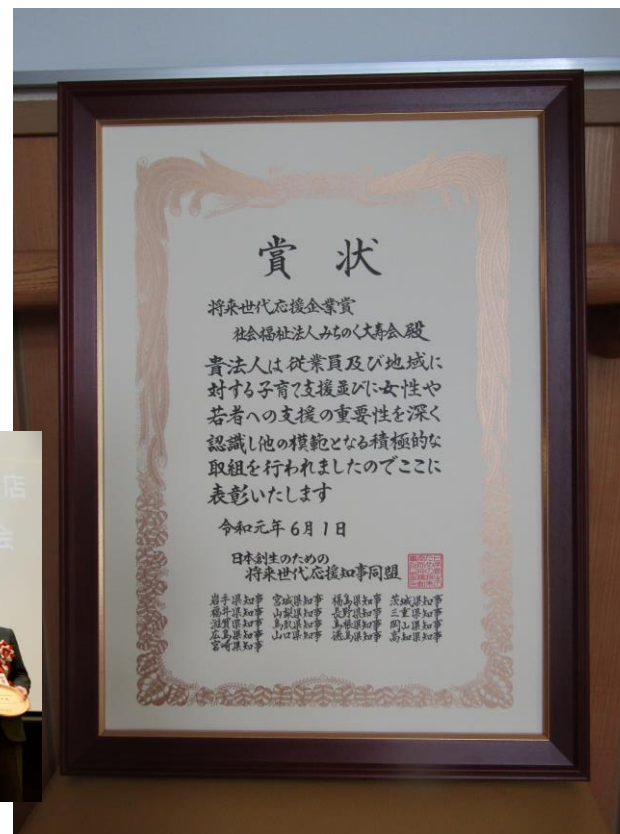 賞状
将来世代応援企業賞
社会福祉法人みちのく大寿会殿
貴法人は従業員及び地域に
対する子育て支援並びに女性や
若者への支援の重要性を深く
認識し他の模範となる積極的な
取組を行われましたのでここに
表彰いたします
令和元年6月1日
日本創生のための
将来世代応援知事同盟
岩手県知事 宮城県知事 福島県知事 茨城県知事
福井県知事 山梨県知事 長野県知事 三重県知事
滋賀県知事 鳥取県知事 島根県知事 岡山県知事
広島県知事 山口県知事 徳島県知事 高知県知事
宮崎県知事
会